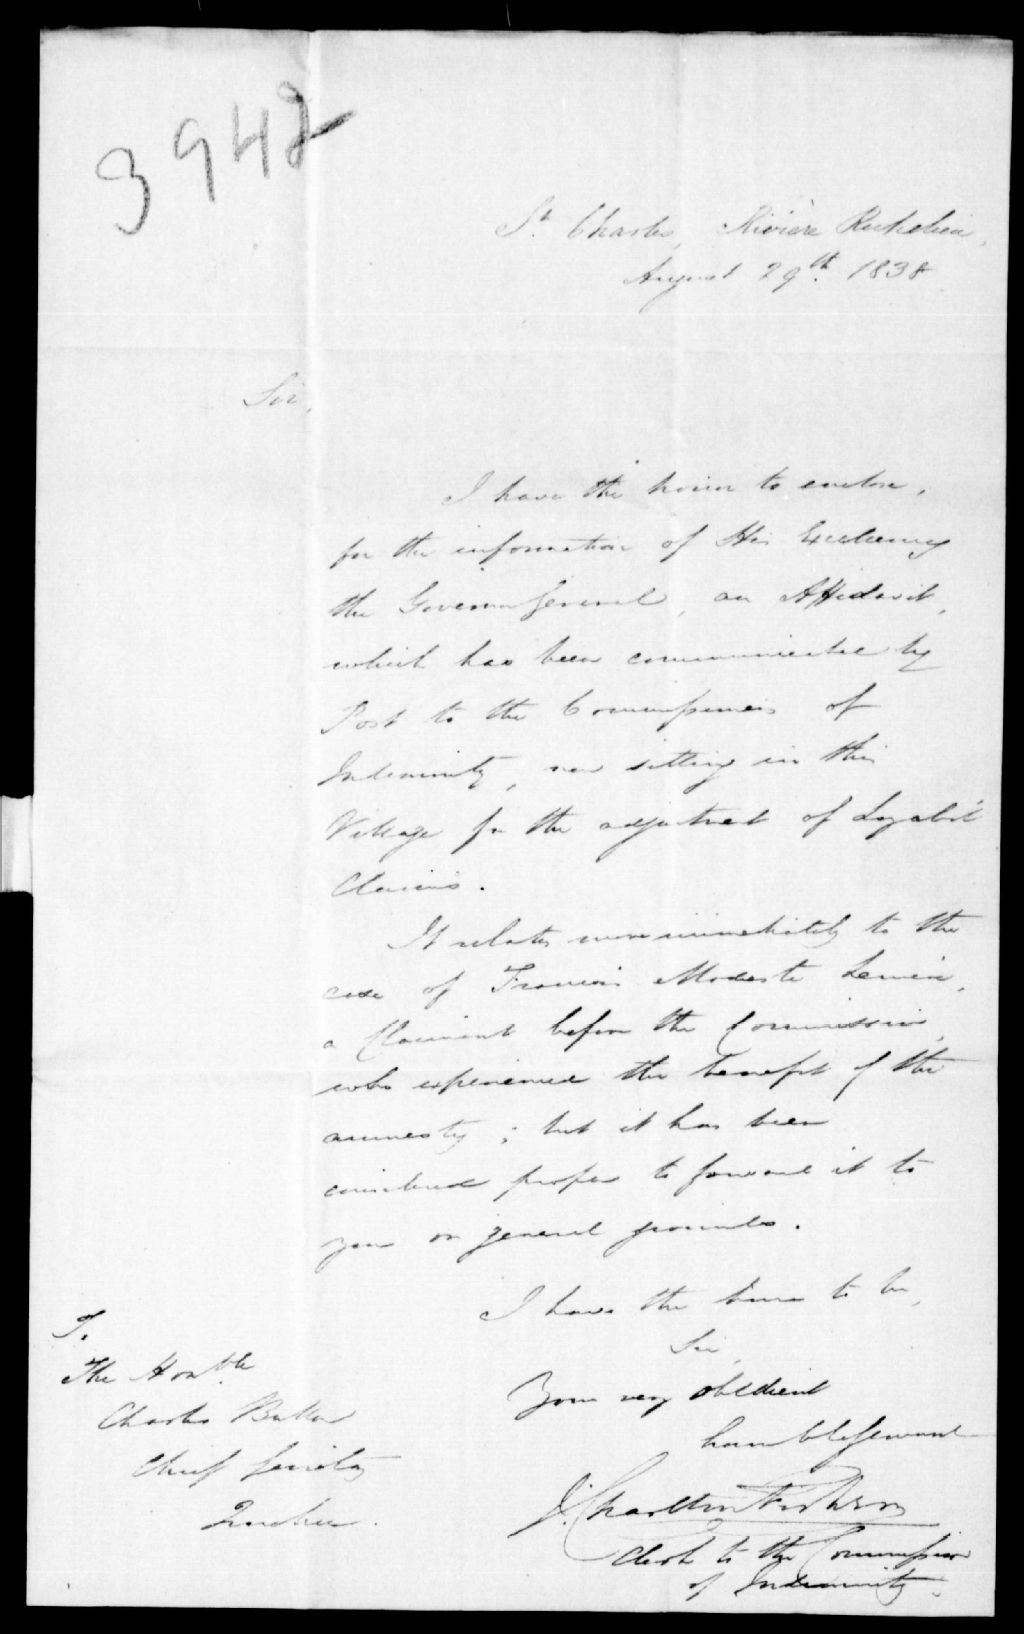 3942
St Charles, Rivière Richelieu,
August 29th. 1838
Sir,
I have the honor to enclose,
for the information of His Excellency
the Governor General, an Affidavit,
which has been communicated by
Post to the Commissioners of
Indemnity, now sitting in this
Village for the adjustment of Loyalist
Claims.
It relates more immediately to the
case of Francois Modeste
a Claimant before the Commission,
who experienced the benefit of the
amnesty; but it has been
considered proper to forward it to
you on general grounds.
I have the honor to be,
Sir,
Your very obedient
humble servant
J. Charlton Fisher
Clerk to the Commission
of Indemnity.
To
The Honble
Charles Buller
Chief Secretary
Quebec.